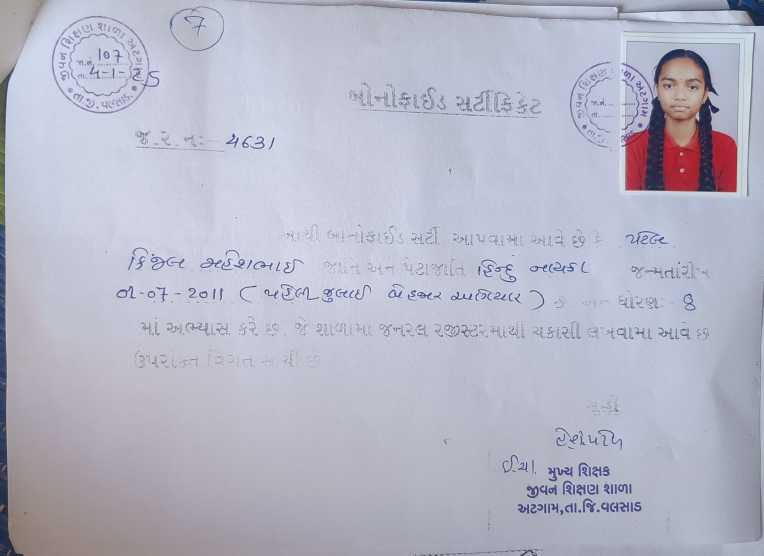 7
જીવન શિક્ષણ શાળા અટગામ
જા.નં. 107
તા. 4-1-25
તા.જી. વલસાડ.
બોનોફાઈડ સર્ટીફિકેટ
જ. ર. નં:- 4631
આથી બાનોફાઈડ સર્ટી. આપવામા આવે છે કે પટેલ
કિંજલ મહેશભાઈ જાતિ અને પેટાજાતિ હિન્દુ નાયકા જન્મતારીખ
01-07-2011 ( પહેલી જુલાઈ બે હજાર અગિયાર ) છે અને ધોરણ - 8
માં અભ્યાસ કરે છે. જે શાળામા જનરલ રજીસ્ટરમાથી ચકાસી લખવામા આવે છે
ઉપરોક્ત વિગત સાચી છે
ઈ.ચા. મુખ્ય શિક્ષક
જીવન શિક્ષણ શાળા
અટગામ,તા.જિ.વલસાડ